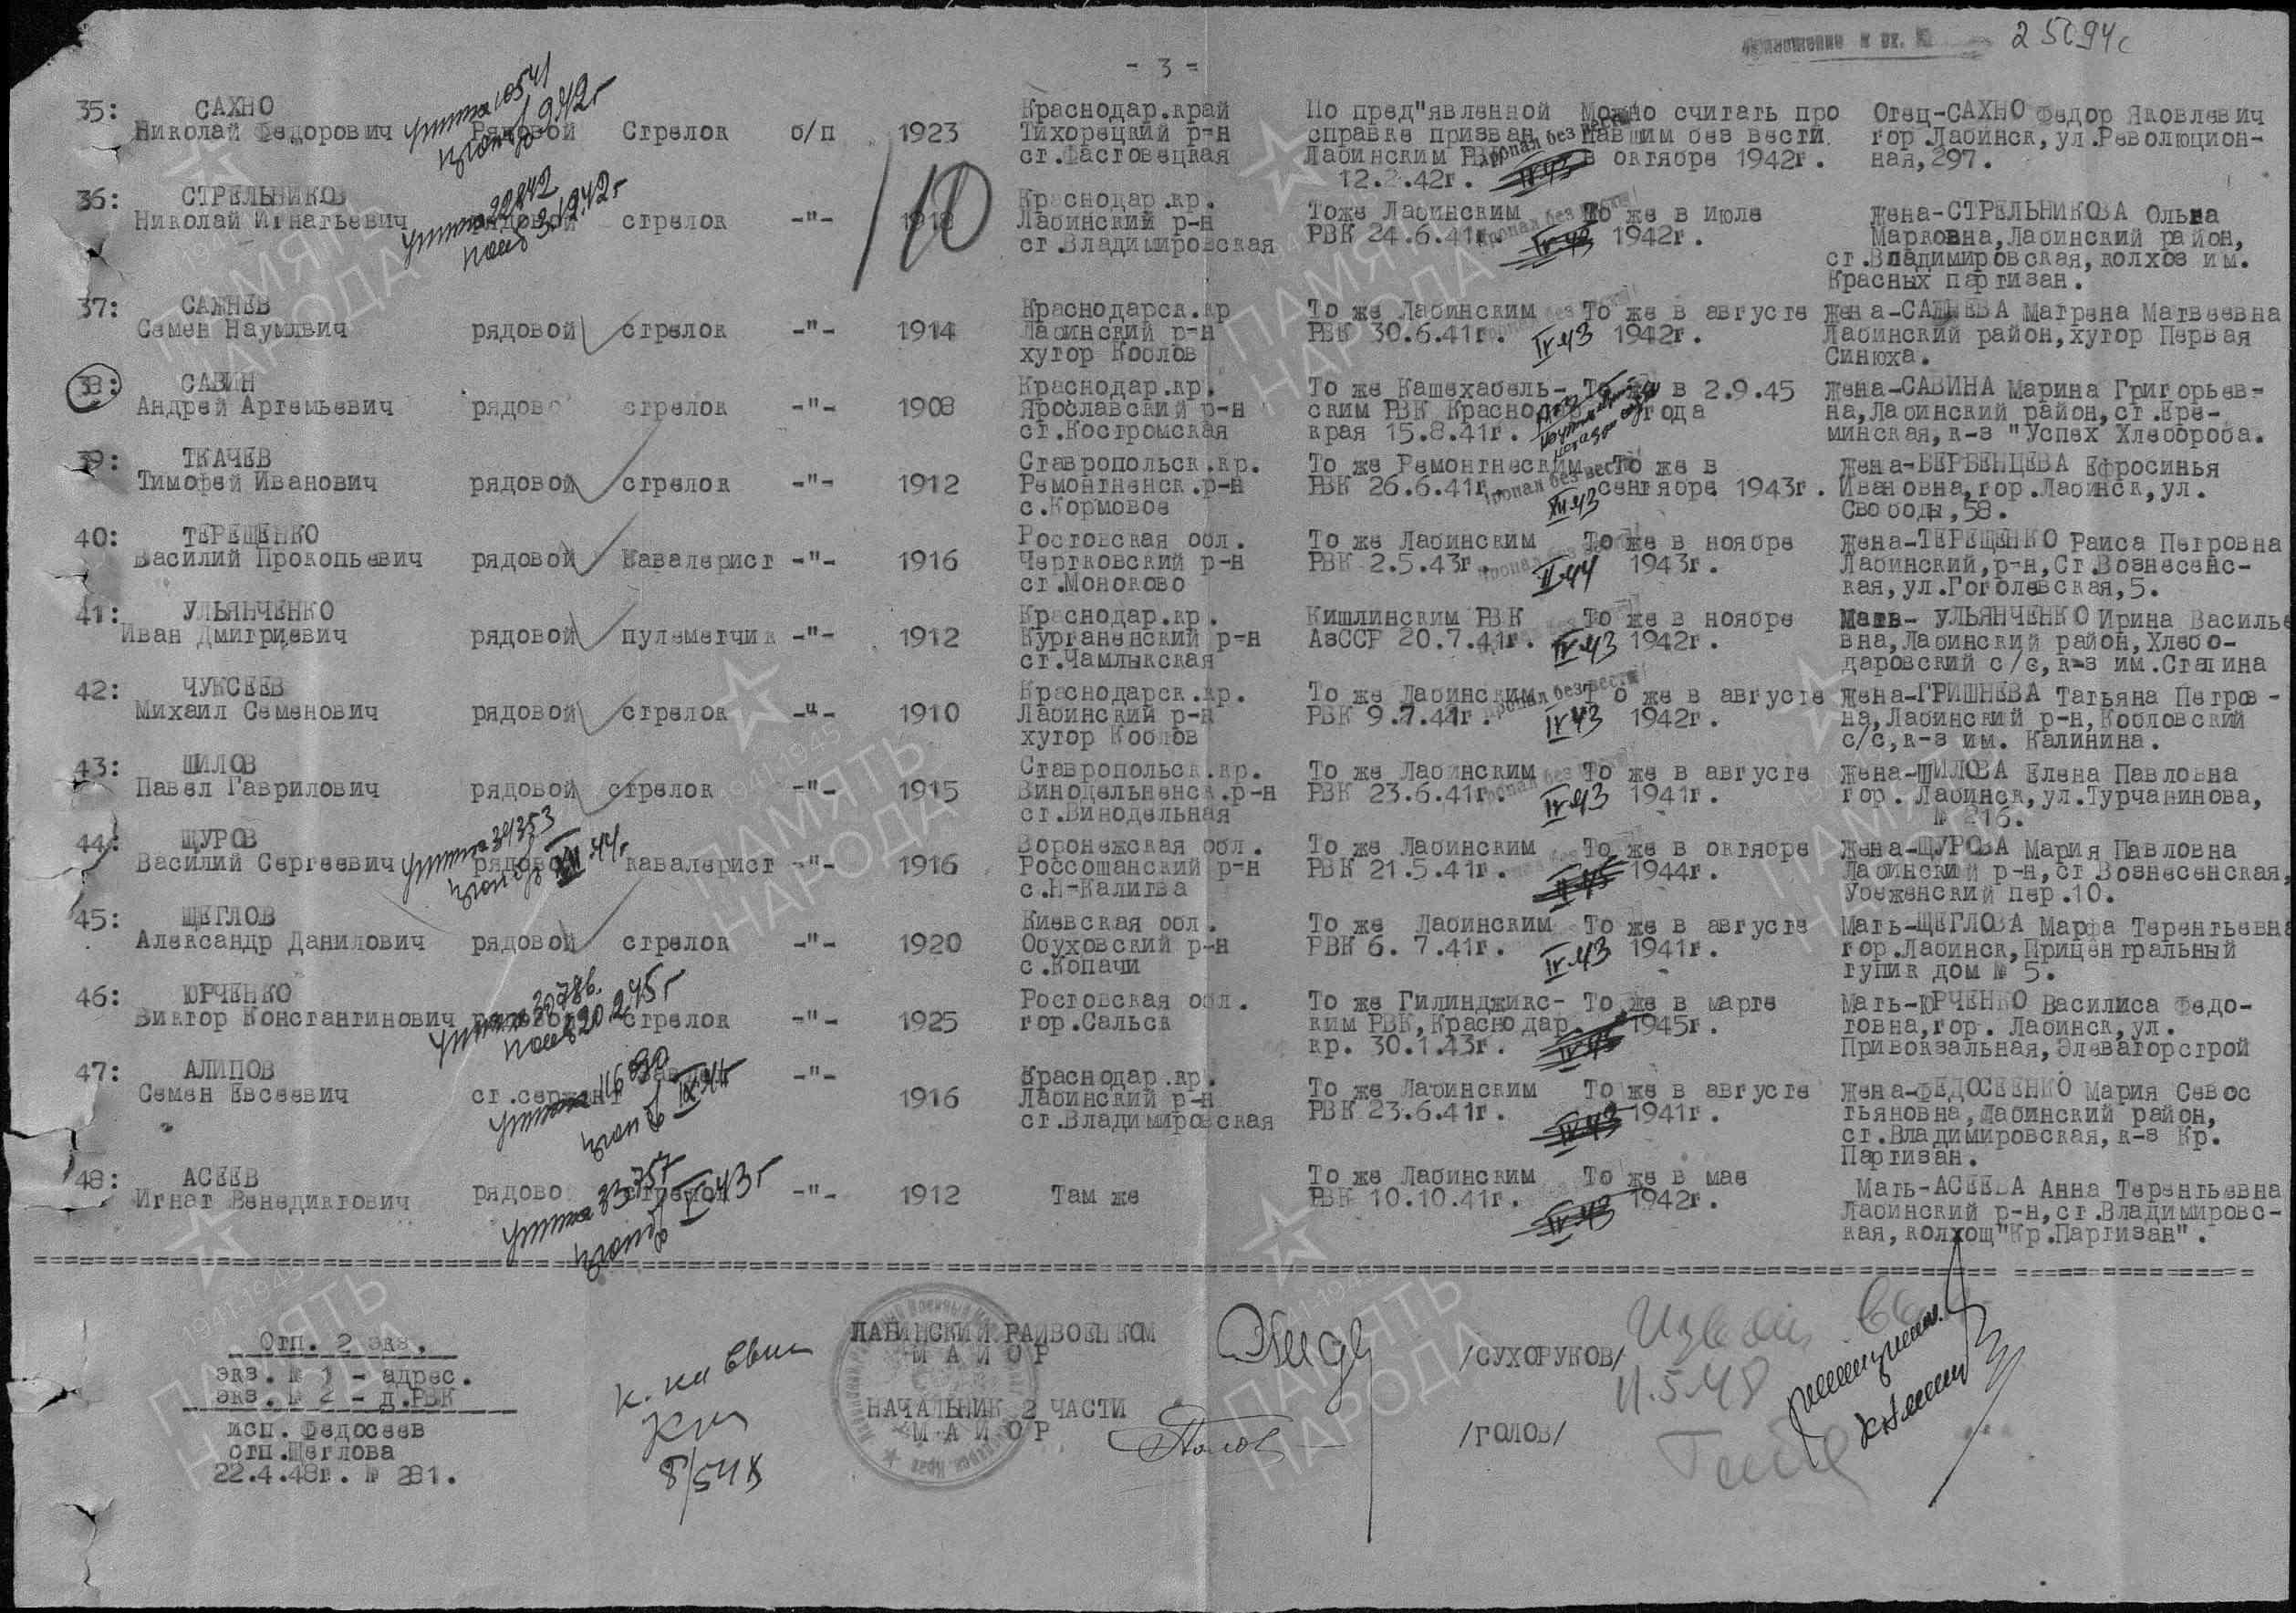 25094с
- 3 -
35: САХНО
Николай Федорович Рядовой Стрелок б/п 1923
Краснодар.край
Тихорецкий р-н
ст.Фастовецкая
По пред"явленной
справке призван
Лабинским РВК
12.2.42г.
Можно считать про
павшим без вести
в октябре 1942г.
Отец-САХНО Федор Яковлевич
гор.Лабинск, ул.Революцион-
ная,297.
110
36: СТРЕЛЬНИКОВ
Николай Игнатьевич рядовой стрелок -"- 1918
Краснодар.кр.
Лабинский р-н
ст.Владимировская
Тоже Лабинским
РВК 24.6.41г.
То же в июле
1942г.
Жена-СТРЕЛЬНИКОВА Ольга
Марковна,Лабинский район,
ст.Владимировская,колхоз им.
Красных партизан.
37: САЖНЕВ
Семен Наумович рядовой стрелок -"- 1914
Краснодарск.кр
Лабинский р-н
хутор Коблов
То же Лабинским
РВК 30.6.41г.
IV-43
То же в августе
1942г.
Жена-САЖНЕВА Матрена Матвеевна
Лабинский район,хутор Первая
Синюха.
38: САВИН
Андрей Артемьевич рядово стрелок -"- 1908
Краснодар.кр.
Ярославский р-н
ст.Костромская
То же Кашехабель-
ским РВК Краснодар
края 15.8.41г.
То же в 2.9.45
года
Жена-САВИНА Марина Григорьев-
на,Лабинский район,ст.Ере-
минская,к-з "Успех Хлебороба.
39: ТКАЧЕВ
Тимофей Иванович рядовой стрелок -"- 1912
Ставропольск.кр.
Ремонтненск.р-н
с.Кормовое
То же Ремонтнеским
РВК 26.6.41г.
Пропал без вести
XII-43
То же в
сентябре 1943г.
Жена-ВЕРБЕНЦЕВА Ефросинья
Ивановна,гор.Лабинск,ул.
Свободы,58.
40: ТЕРЕЩЕНКО
Василий Прокопьевич рядовой Кавалерист -"- 1916
Ростовская обл.
Чертковский р-н
ст.Моноково
То же Лабинским
РВК 2.5.43г.
II-44
То же в ноябре
1943г.
Жена-ТЕРЕЩЕНКО Раиса Петровна
Лабинский,р-н,Ст.Вознесенс-
кая,ул.Гоголевская,5.
41: УЛЬЯНЧЕНКО
Иван Дмитриевич рядовой пулеметчик -"- 1912
Краснодар.кр.
Курганенский р-н
ст.Чамлыкская
Кишлинским РВК
АзССР 20.7.41г.
IV-43
То же в ноябре
1942г.
Мать- УЛЬЯНЧЕНКО Ирина Василье
вна,Лабинский район,Хлебо-
даровский с/с,к-з им.Сталина
42: ЧУКСЕЕВ
Михаил Семенович рядовой стрелок -"- 1910
Краснодарск.кр.
Лабинский р-н
хутор Коблов
То же Лабинским
РВК 9.7.41г.
Пропал без вести
IV-43
То же в августе
1942г.
Жена-ГРИШНЕВА Татьяна Петров -
на,Лабинский р-н,Кобловский
с/с,к-з им. Калинина.
43: ШИЛОВ
Павел Гаврилович рядовой стрелок -"- 1915
Ставропольск.кр.
Винодельненск.р-н
ст.Винодельная
То же Лабинским
РВК 23.6.41г.
IV-43
То же в августе
1941г.
Жена-ШИЛОВА Елена Павловна
гор. Лабинск,ул.Турчанинова,
№ 216.
44: ЩУРОВ
Василий Сергеевич рядовой кавалерист -"- 1916
Воронежская обл.
Россошанский р-н
с.Н-Калитва
То же Лабинским
РВК 21.5.41г.
То же в октябре
1944г.
Жена-ЩУРОВА Мария Павловна
Лабинский р-н,ст Вознесенская,
Убеженский пер.10.
45: ЩЕГЛОВ
Александр Данилович рядовой стрелок -"- 1920
Киевская обл.
Обуховский р-н
с.Копачи
То же Лабинским
РВК 6. 7.41г.
IV-43
То же в августе
1941г.
Мать-ЩЕГЛОВА Марфа Терентьевна
гор.Лабинск,Прицентральный
тупик дом № 5.
46: ЮРЧЕНКО
Виктор Константинович рядовой стрелок -"- 1925
Ростовская обл.
гор.Сальск
То же Гилинджикс-
ким РВК,Краснодар.
кр. 30.1.43г.
То же в марте
1945г.
Мать-ЮРЧЕНКО Василиса Федо-
товна,гор. Лабинск,ул.
Привокзальная,Элеваторстрой
47: АЛИПОВ
Семен Евсеевич ст.сержант -"- 1916
Краснодар.кр.
Лабинский р-н
ст.Владимировская
То же Лабинским
РВК 23.6.41г.
То же в августе
1941г.
Жена-ФЕДОСЕЕНКО Мария Севос
тьяновна,Лабинский район,
ст.Владимировская,к-з Кр.
Партизан.
48: АСЕЕВ
Игнат Венедиктович рядово стрелок -"- 1912
Там же
То же Лабинским
РВК 10.10.41г.
То же в мае
1942г.
Мать-АСЕЕВА Анна Терентьевна
Лабинский р-н,ст.Владимировс-
кая,колхощ"Кр.Партизан".
Отп. 2 экз.
экз. № 1 - адрес.
экз. № 2 - д.РВК
исп. Федосеев
отп.Щеглова
22.4.48г. № 281.
ЛАБИНСКИЙ РАЙВОЕНКОМ
М А Й О Р
/СУХОРУКОВ/
НАЧАЛЬНИК 2 ЧАСТИ
М А Й О Р
/ГОЛОВ/
11.5.48
ПАМЯТЬ
НАРОДА
1941-1945